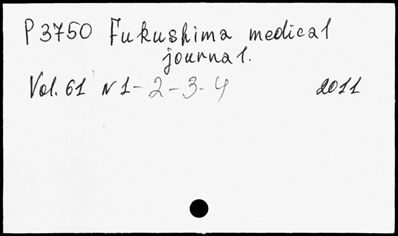 P3750 Fukushima medical
journal.
Vol. 61 N 1-2-3-4 2011